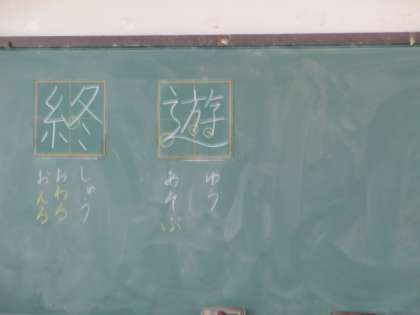 遊
ゆう
あそぶ
終
しゅう
おわる
おえる